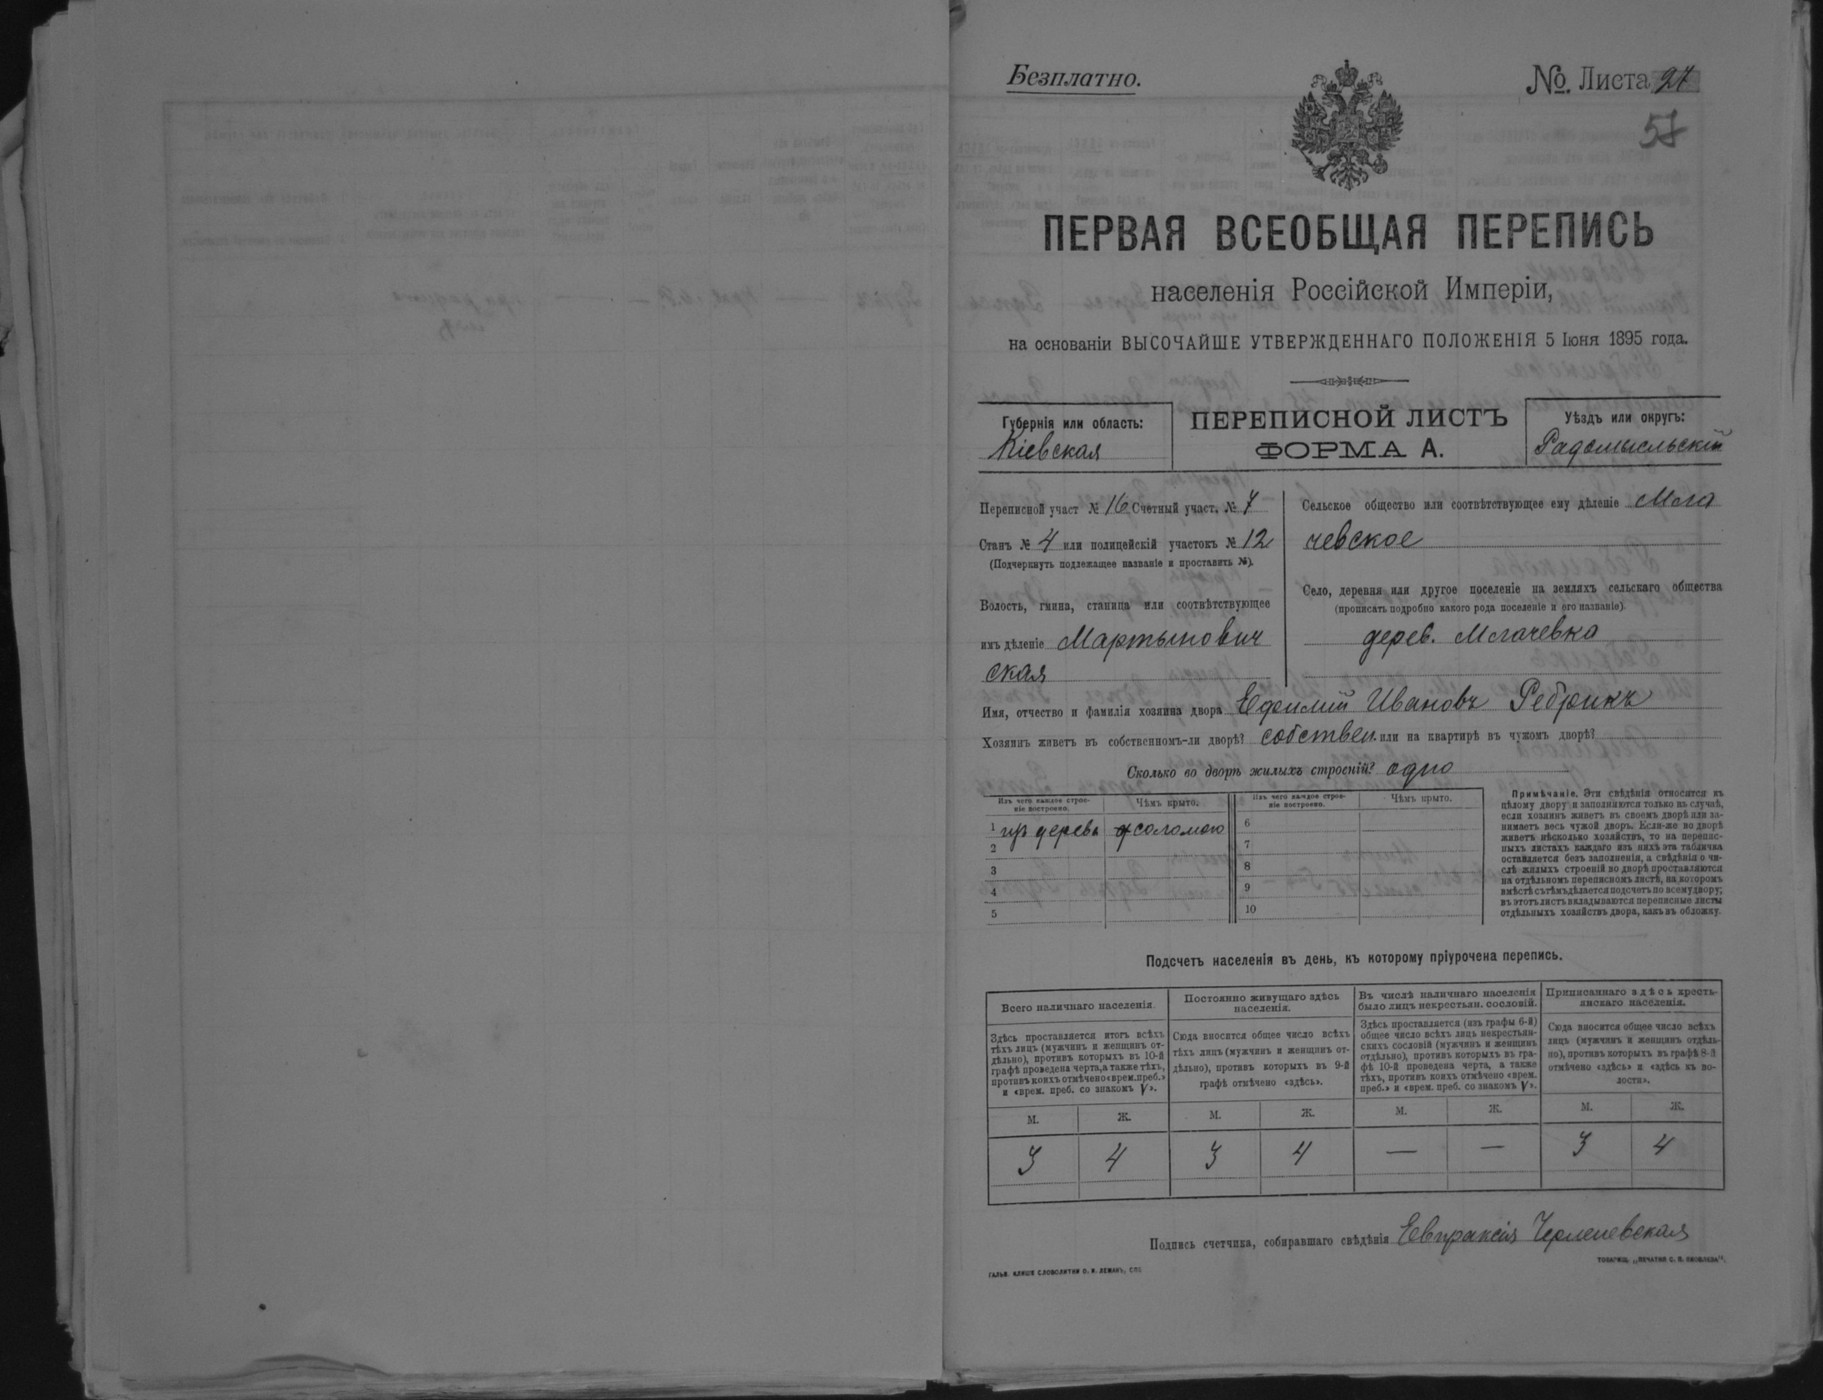 Безплатно.
№. Листа 27
57
ПЕРВАЯ ВСЕОБЩАЯ ПЕРЕПИСЬ
населенія Россійской Имперіи,
на основаніи ВЫСОЧАЙШЕ УТВЕРЖДЕННАГО ПОЛОЖЕНІЯ 5 Іюня 1895 года.
Губернія или область:
Кіевская
ПЕРЕПИСНОЙ ЛИСТЪ
ФОРМА А.
Уѣздъ или округъ:
Радомысльскій
Переписной участ № 16 Счетный участ. № 7
Станъ № 4 или полицейскій участокъ № 12
(Подчеркнуть подлежащее названіе и проставить №).
Волость, гмина, станица или соотвѣтствующее
имъ дѣленіе Мартынович
ская
Сельское общество или соотвѣтствующее ему дѣленіе Мла
чевское
Село, деревня или другое поселеніе на земляхъ сельскаго общества
(прописать подробно какого рода поселеніе и его названіе).
дерев. Млачевка
Имя, отчество и фамилія хозяина двора Ефимій Ивановъ Ребрикъ
Хозяинъ живетъ въ собственномъ-ли дворѣ? собствен. или на квартирѣ въ чужомъ дворѣ?
Сколько во дворѣ жилыхъ строеній? одно
Изъ чего каждое строе-
ніе построено.
Чѣмъ крыто.
Изъ чего каждое строе-
ніе построено.
Чѣмъ крыто.
1 изъ дерева соломою
2
3
4
5
6
7
8
9
10
Примѣчаніе. Эти свѣдѣнія относятся къ
цѣлому двору и заполняются только въ случаѣ,
если хозяинъ живетъ въ своемъ дворѣ или за-
нимаетъ весь чужой дворъ. Если-же во дворѣ
живетъ нѣсколько хозяйствъ, то на перепис-
ныхъ листахъ каждаго изъ нихъ эта табличка
оставляется безъ заполненія, а свѣдѣнія о чи-
слѣ жилыхъ строеній во дворѣ проставляются
на отдѣльномъ переписномъ листѣ, на которомъ
вмѣстѣ съ тѣмъ дѣлается подсчетъ по всему двору;
въ этотъ листъ вкладываются переписные листы
отдѣльныхъ хозяйствъ двора, какъ въ обложку.
Подсчетъ населенія въ день, къ которому пріурочена перепись.
Всего наличнаго населенія.
Здѣсь проставляется итогъ всѣхъ
тѣхъ лицъ (мужчинъ и женщинъ от-
дѣльно), противъ которыхъ въ 10-й
графѣ проведена черта, а также тѣхъ,
противъ коихъ отмѣчено «врем. преб.»
и «врем. преб. со знакомъ V».
Постоянно живущаго здѣсь
населенія.
Сюда вносится общее число всѣхъ
тѣхъ лицъ (мужчинъ и женщинъ от-
дѣльно), противъ которыхъ въ 9-й
графѣ отмѣчено «здѣсь».
Въ числѣ наличнаго населенія
было лицъ некрестьян. сословій.
Здѣсь проставляется (изъ графы 6-й)
общее число всѣхъ лицъ некрестьян-
скихъ сословій (мужчинъ и женщинъ
отдѣльно), противъ которыхъ въ гра-
фѣ 10-й проведена черта, а также
тѣхъ, противъ коихъ отмѣчено «врем.
преб.» и «врем. преб. со знакомъ V».
Приписаннаго здѣсь кресть-
янскаго населенія.
Сюда вносится общее число всѣхъ
лицъ (мужчинъ и женщинъ отдѣль-
но), противъ которыхъ въ графѣ 8-й
отмѣчено «здѣсь» и «здѣсь въ во-
лости».
М. Ж. М. Ж. М. Ж. М. Ж.
3 4 3 4 — — 3 4
Подпись счетчика, собиравшаго свѣдѣнія Евпраксія
ГАЛЬВ. КЛИШЕ СЛОВОЛИТНИ О. И. ЛЕМАНЪ, СПБ
ТОВАРИЩ. „ПЕЧАТНЯ С. П. ЯКОВЛЕВА“.